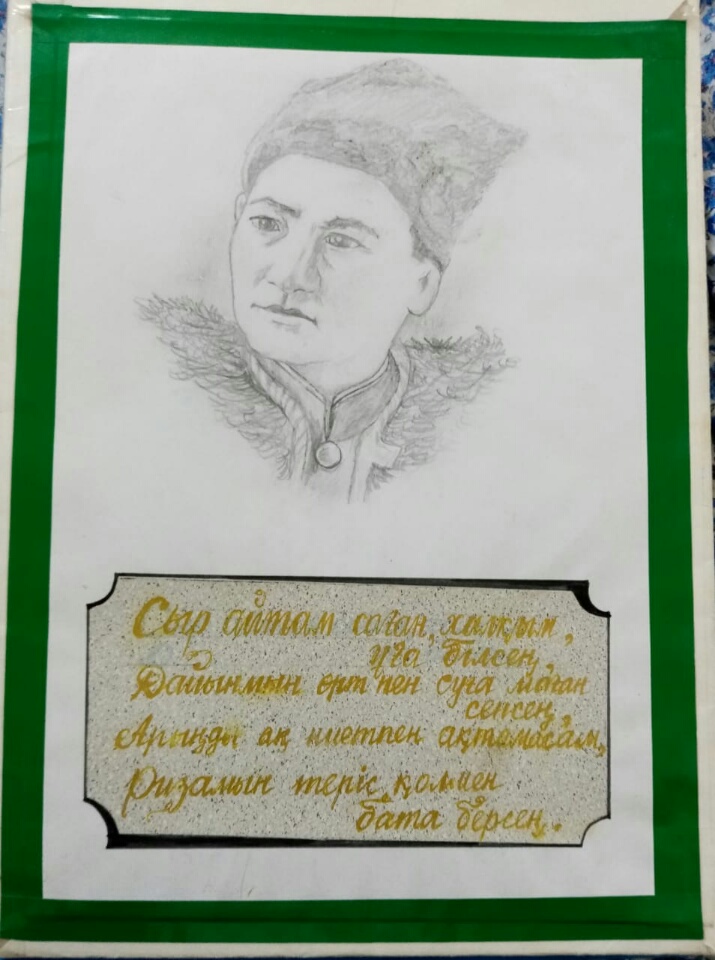 Сыр айтам саған, халқым,
ұға білсең,
Дайынмын өрт пен суға маған
сепсең,
Арыңды ақ ниетпен ақтамасам,
Ризамын теріс қолмен
бата берсең.